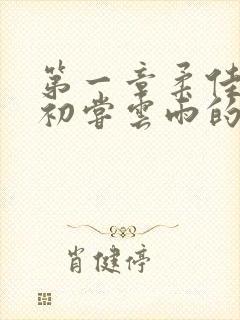 第一章柔佳
初尝云雨的
肖健停